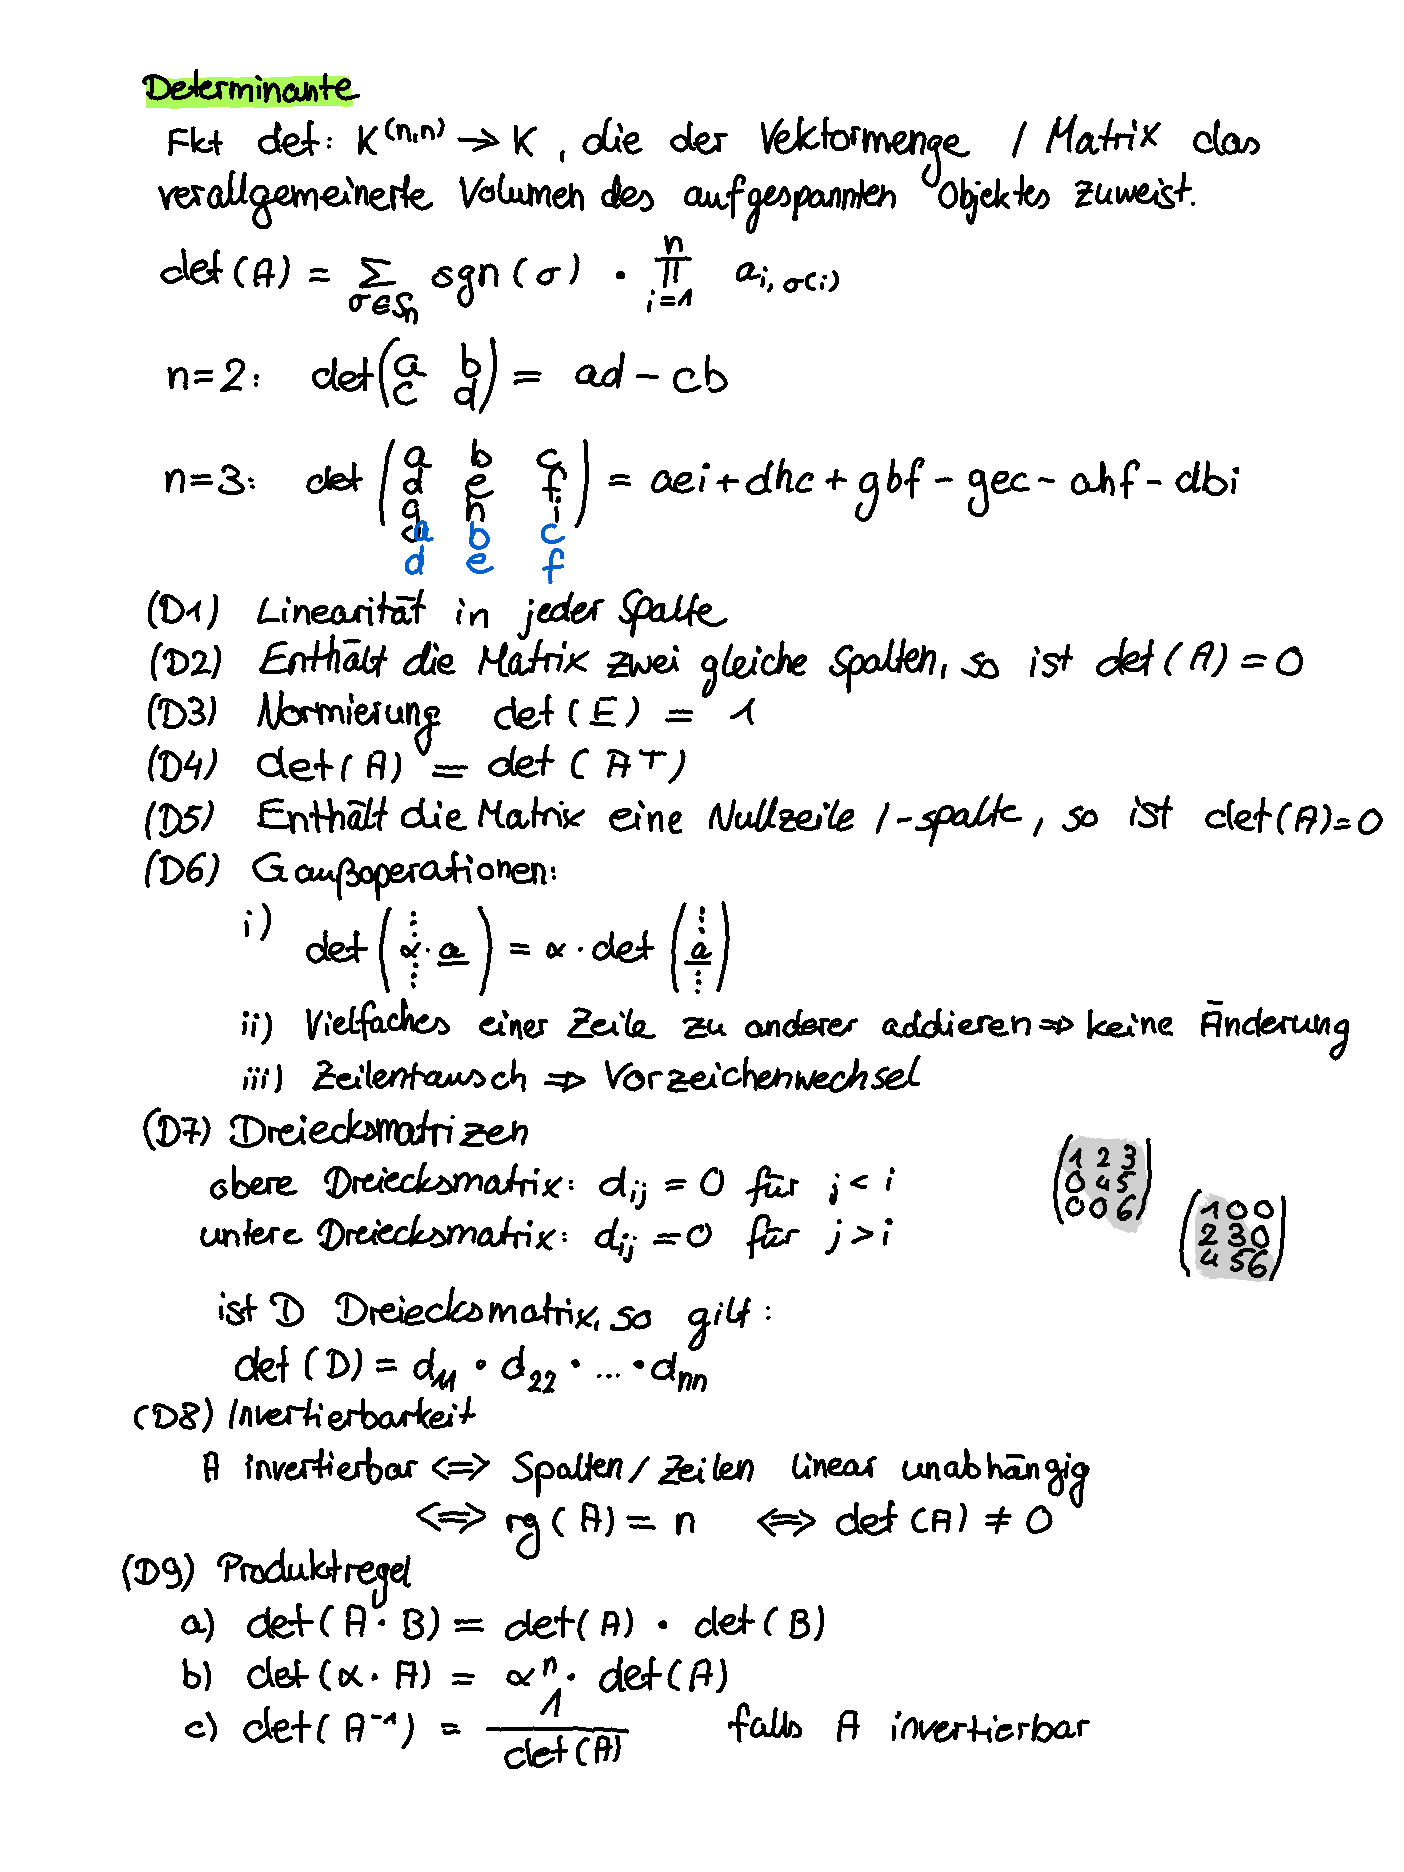 Determinante
Fkt det: K^(n,n) → K, die der Vektormenge / Matrix das
verallgemeinerte Volumen des aufgespannten Objektes zuweist.
det(A) = ∑_{σ∈S_n} sgn(σ) · ∏_{i=1}^{n} a_{i,σ(i)}
n=2: det(a b; c d) = ad - cb
n=3: det(a b c; d e f; g h i) = aei + dhc + gbf - gec - ahf - dbi
a b c
d e f
(D1) Linearität in jeder Spalte
(D2) Enthält die Matrix zwei gleiche Spalten, so ist det(A) = 0
(D3) Normierung det(E) = 1
(D4) det(A) = det(A^T)
(D5) Enthält die Matrix eine Nullzeile / -spalte, so ist det(A)=0
(D6) Gaußoperationen:
i) det(⋮ α·a ⋮) = α · det(⋮ a ⋮)
ii) Vielfaches einer Zeile zu anderer addieren ⇒ keine Änderung
iii) Zeilentausch ⇒ Vorzeichenwechsel
(D7) Dreiecksmatrizen
obere Dreiecksmatrix: d_ij = 0 für j < i
(1 2 3; 0 4 5; 0 0 6)
untere Dreiecksmatrix: d_ij = 0 für j > i
(1 0 0; 2 3 0; 4 5 6)
ist D Dreiecksmatrix, so gilt:
det(D) = d_11 · d_22 · ... · d_nn
(D8) Invertierbarkeit
A invertierbar ⟺ Spalten / Zeilen linear unabhängig
⟺ rg(A) = n ⟺ det(A) ≠ 0
(D9) Produktregel
a) det(A · B) = det(A) · det(B)
b) det(α · A) = α^n · det(A)
c) det(A^-1) = 1/det(A) falls A invertierbar